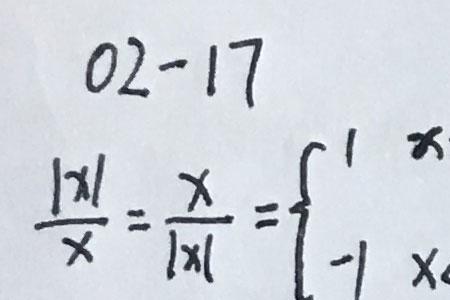 02-17
|x|/x = x/|x| = { 1 x
-1 x<